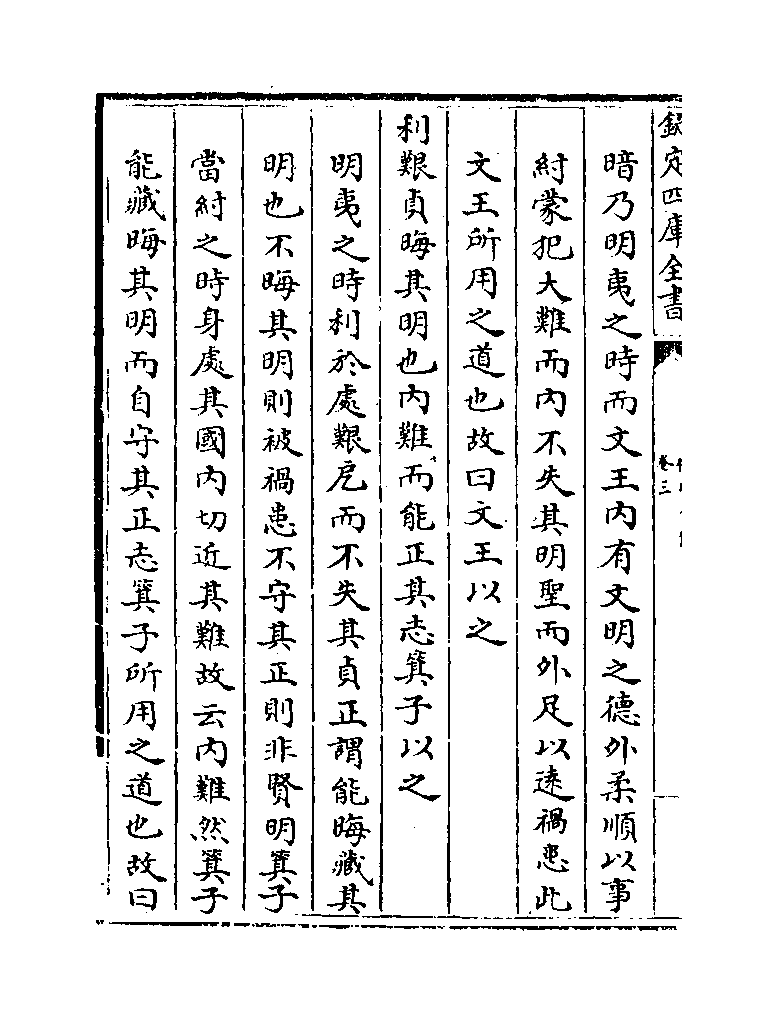 欽定四庫全書
卷三
暗乃明夷之時而文王内有文明之德外柔順以事
紂蒙犯大難而内不失其明聖而外足以逺禍患此
文王所用之道也故曰文王以之
利艱貞晦其明也内難而能正其志箕子以之
明夷之時利於處艱戹而不失其貞正謂能晦藏其
明也不晦其明則被禍患不守其正則非賢明箕子
當紂之時身處其國内切近其難故云内難然箕子
能藏晦其明而自守其正志箕子所用之道也故曰